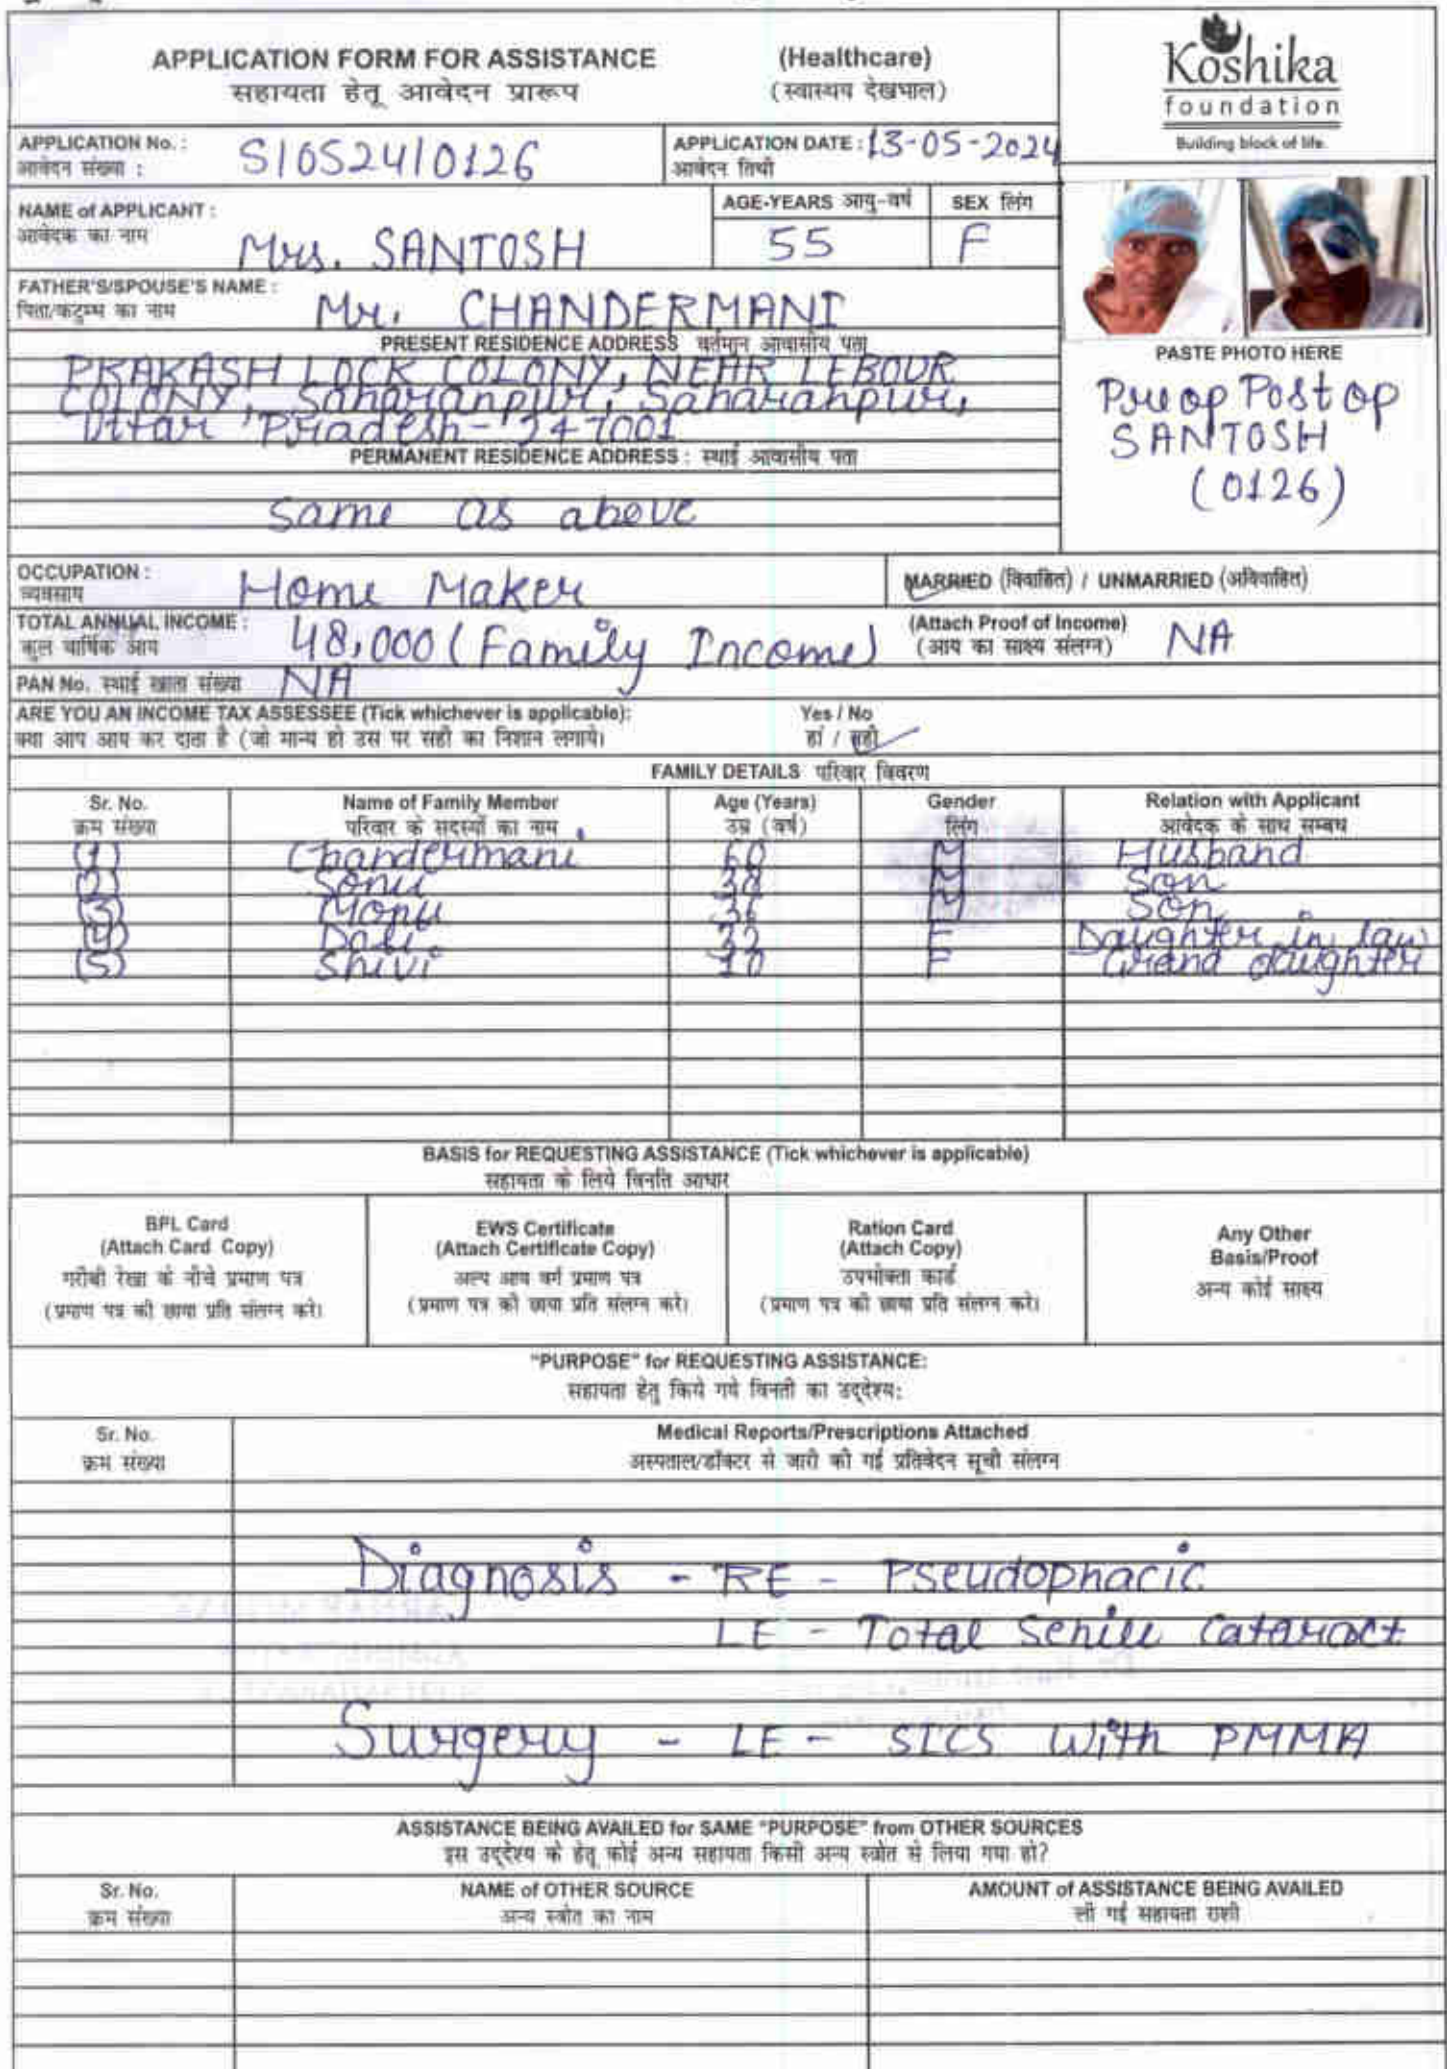 APPLICATION FORM FOR ASSISTANCE (Healthcare)
सहायता हेतू आवेदन प्रारूप (स्वास्थय देखभाल)
Koshika
foundation
Building block of life.
APPLICATION No. : S/0524/0126 APPLICATION DATE : 13-05-2024
आवेदन संख्या : आवेदन तिथी
NAME of APPLICANT : AGE-YEARS आयु-वर्ष SEX लिंग
आवेदक का नाम Mrs. SANTOSH 55 F
FATHER'S/SPOUSE'S NAME :
पिता/कटुम्ब का नाम Mr. CHANDERMANI
PRESENT RESIDENCE ADDRESS वर्तमान आवासीय पता
PRAKASH LOCK COLONY, NEAR LEBOUR
COLONY, Saharanpur, Saharanpur,
Uttar Pradesh-247001
PERMANENT RESIDENCE ADDRESS : स्थाई आवासीय पता
Same as above
PASTE PHOTO HERE
Preop Post op
SANTOSH
(0126)
OCCUPATION : Home Maker MARRIED (विवाहित) / UNMARRIED (अविवाहित)
व्यवसाय
TOTAL ANNUAL INCOME : 48,000 (Family Income) (Attach Proof of Income) NA
कुल वार्षिक आय (आय का साक्ष्य संलग्न)
PAN No. स्थाई खाता संख्या NA
ARE YOU AN INCOME TAX ASSESSEE (Tick whichever is applicable): Yes / No
क्या आप आय कर दाता है (जो मान्य हो उस पर सही का निशान लगाये। हां / नहीं
FAMILY DETAILS परिवार विवरण
Sr. No. Name of Family Member Age (Years) Gender Relation with Applicant
क्रम संख्या परिवार के सदस्यों का नाम उम्र (वर्ष) लिंग आवेदक के साथ सम्बध
(1) Chandermani 60 M Husband
(2) Sonu 38 M Son
(3) Monu 36 M Son
(4) Doli 32 F Daughter in law
(5) Shivi 10 F Grand daughter
BASIS for REQUESTING ASSISTANCE (Tick whichever is applicable)
सहायता के लिये विनति आधार
BPL Card
(Attach Card Copy)
गरीबी रेखा के नीचे प्रमाण पत्र
(प्रमाण पत्र की छाया प्रति संलग्न करे।
EWS Certificate
(Attach Certificate Copy)
अल्प आय वर्ग प्रमाण पत्र
(प्रमाण पत्र की छाया प्रति संलग्न करे।
Ration Card
(Attach Copy)
उपभोक्ता कार्ड
(प्रमाण पत्र की छाया प्रति संलग्न करे।
Any Other
Basis/Proof
अन्य कोई साक्ष्य
"PURPOSE" for REQUESTING ASSISTANCE:
सहायता हेतु किये गये विनती का उद्देश्य:
Sr. No. Medical Reports/Prescriptions Attached
क्रम संख्या अस्पताल/डॉक्टर से जारी की गई प्रतिवेदन सूची संलग्न
Diagnosis - RE - Pseudophacic
LE - Total Senile Cataract
Surgery - LE - SICS With PMMA
ASSISTANCE BEING AVAILED for SAME "PURPOSE" from OTHER SOURCES
इस उद्देश्य के हेतू कोई अन्य सहायता किसी अन्य स्त्रोत से लिया गया हो?
Sr. No. NAME of OTHER SOURCE AMOUNT of ASSISTANCE BEING AVAILED
क्रम संख्या अन्य स्त्रोत का नाम ली गई सहायता राशी